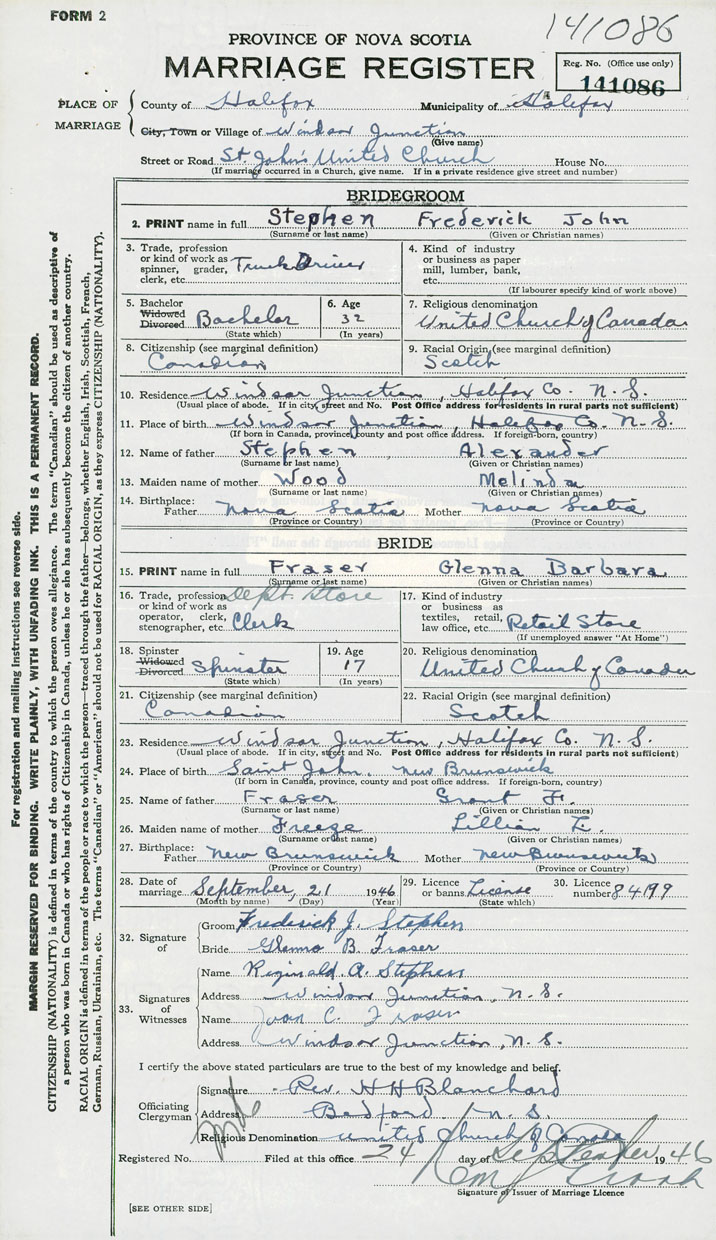 FORM 2
141086
PROVINCE OF NOVA SCOTIA
MARRIAGE REGISTER
Reg. No. (Office use only)
141086
PLACE OF MARRIAGE
County of Halifax Municipality of Halifax
City, Town or Village of Windsor Junction
(Give name)
Street or Road St. John's United Church House No.
(If marriage occurred in a Church, give name. If in a private residence give street and number)
BRIDEGROOM
2. PRINT name in full Stephen Frederick John
(Surname or last name) (Given or Christian names)
3. Trade, profession or kind of work as spinner, grader, clerk, etc. Truck Driver
4. Kind of industry or business as paper mill, lumber, bank, etc.
(If labourer specify kind of work above)
5. Bachelor Widowed Divorced Bachelor
(State which)
6. Age 32
(In years)
7. Religious denomination
United Church of Canada
8. Citizenship (see marginal definition)
Canadian
9. Racial Origin (see marginal definition)
Scotch
10. Residence Windsor Junction, Halifax Co. N.S.
(Usual place of abode. If in city, street and No. Post Office address for residents in rural parts not sufficient)
11. Place of birth Windsor Junction, Halifax Co. N.S.
(If born in Canada, province, county and post office address. If foreign-born, country)
12. Name of father Stephen, Alexander
(Surname or last name) (Given or Christian names)
13. Maiden name of mother Wood Melinda
(Surname or last name) (Given or Christian names)
14. Birthplace: Father Nova Scotia Mother Nova Scotia
(Province or Country) (Province or Country)
BRIDE
15. PRINT name in full Fraser Glenna Barbara
(Surname or last name) (Given or Christian names)
16. Trade, profession or kind of work as operator, clerk, stenographer, etc. Dept. Store Clerk
17. Kind of industry or business as textiles, retail, law office, etc. Retail Store
(If unemployed answer "At Home")
18. Spinster Widowed Divorced Spinster
(State which)
19. Age 17
(In years)
20. Religious denomination
United Church of Canada
21. Citizenship (see marginal definition)
Canadian
22. Racial Origin (see marginal definition)
Scotch
23. Residence Windsor Junction, Halifax Co. N.S.
(Usual place of abode. If in city, street and No. Post Office address for residents in rural parts not sufficient)
24. Place of birth Saint John, New Brunswick
(If born in Canada, province, county and post office address. If foreign-born, country)
25. Name of father Fraser Grant H.
(Surname or last name) (Given or Christian names)
26. Maiden name of mother Freeze Lillian E.
(Surname or last name) (Given or Christian names)
27. Birthplace: Father New Brunswick Mother New Brunswick
(Province or Country) (Province or Country)
28. Date of marriage September, 21 1946
(Month by name) (Day) (Year)
29. Licence or banns License
(State which)
30. Licence number 84199
32. Signature of
Groom Frederick J. Stephen
Bride Glenna B. Fraser
33. Signatures of Witnesses
Name Reginald A. Stephen
Address Windsor Junction, N.S.
Name Joan C. Fraser
Address Windsor Junction, N.S.
I certify the above stated particulars are true to the best of my knowledge and belief.
Officiating Clergyman
Signature Rev. H H Blanchard
Address Bedford N.S.
Religious Denomination United Church of Canada
Registered No. Filed at this office 24 day of September 1946
Signature of Issuer of Marriage Licence
[SEE OTHER SIDE]
For registration and mailing instructions see reverse side.
MARGIN RESERVED FOR BINDING. WRITE PLAINLY, WITH UNFADING INK. THIS IS A PERMANENT RECORD.
CITIZENSHIP (NATIONALITY) is defined in terms of the country to which the person owes allegiance. The term "Canadian" should be used as descriptive of
a person who was born in Canada or who has rights of Citizenship in Canada, unless he or she has subsequently become the citizen of another country.
RACIAL ORIGIN is defined in terms of the people or race to which the person—traced through the father—belongs, whether English, Irish, Scottish, French,
German, Russian, Ukrainian, etc. The terms "Canadian" or "American" should not be used for RACIAL ORIGIN, as they express CITIZENSHIP (NATIONALITY).